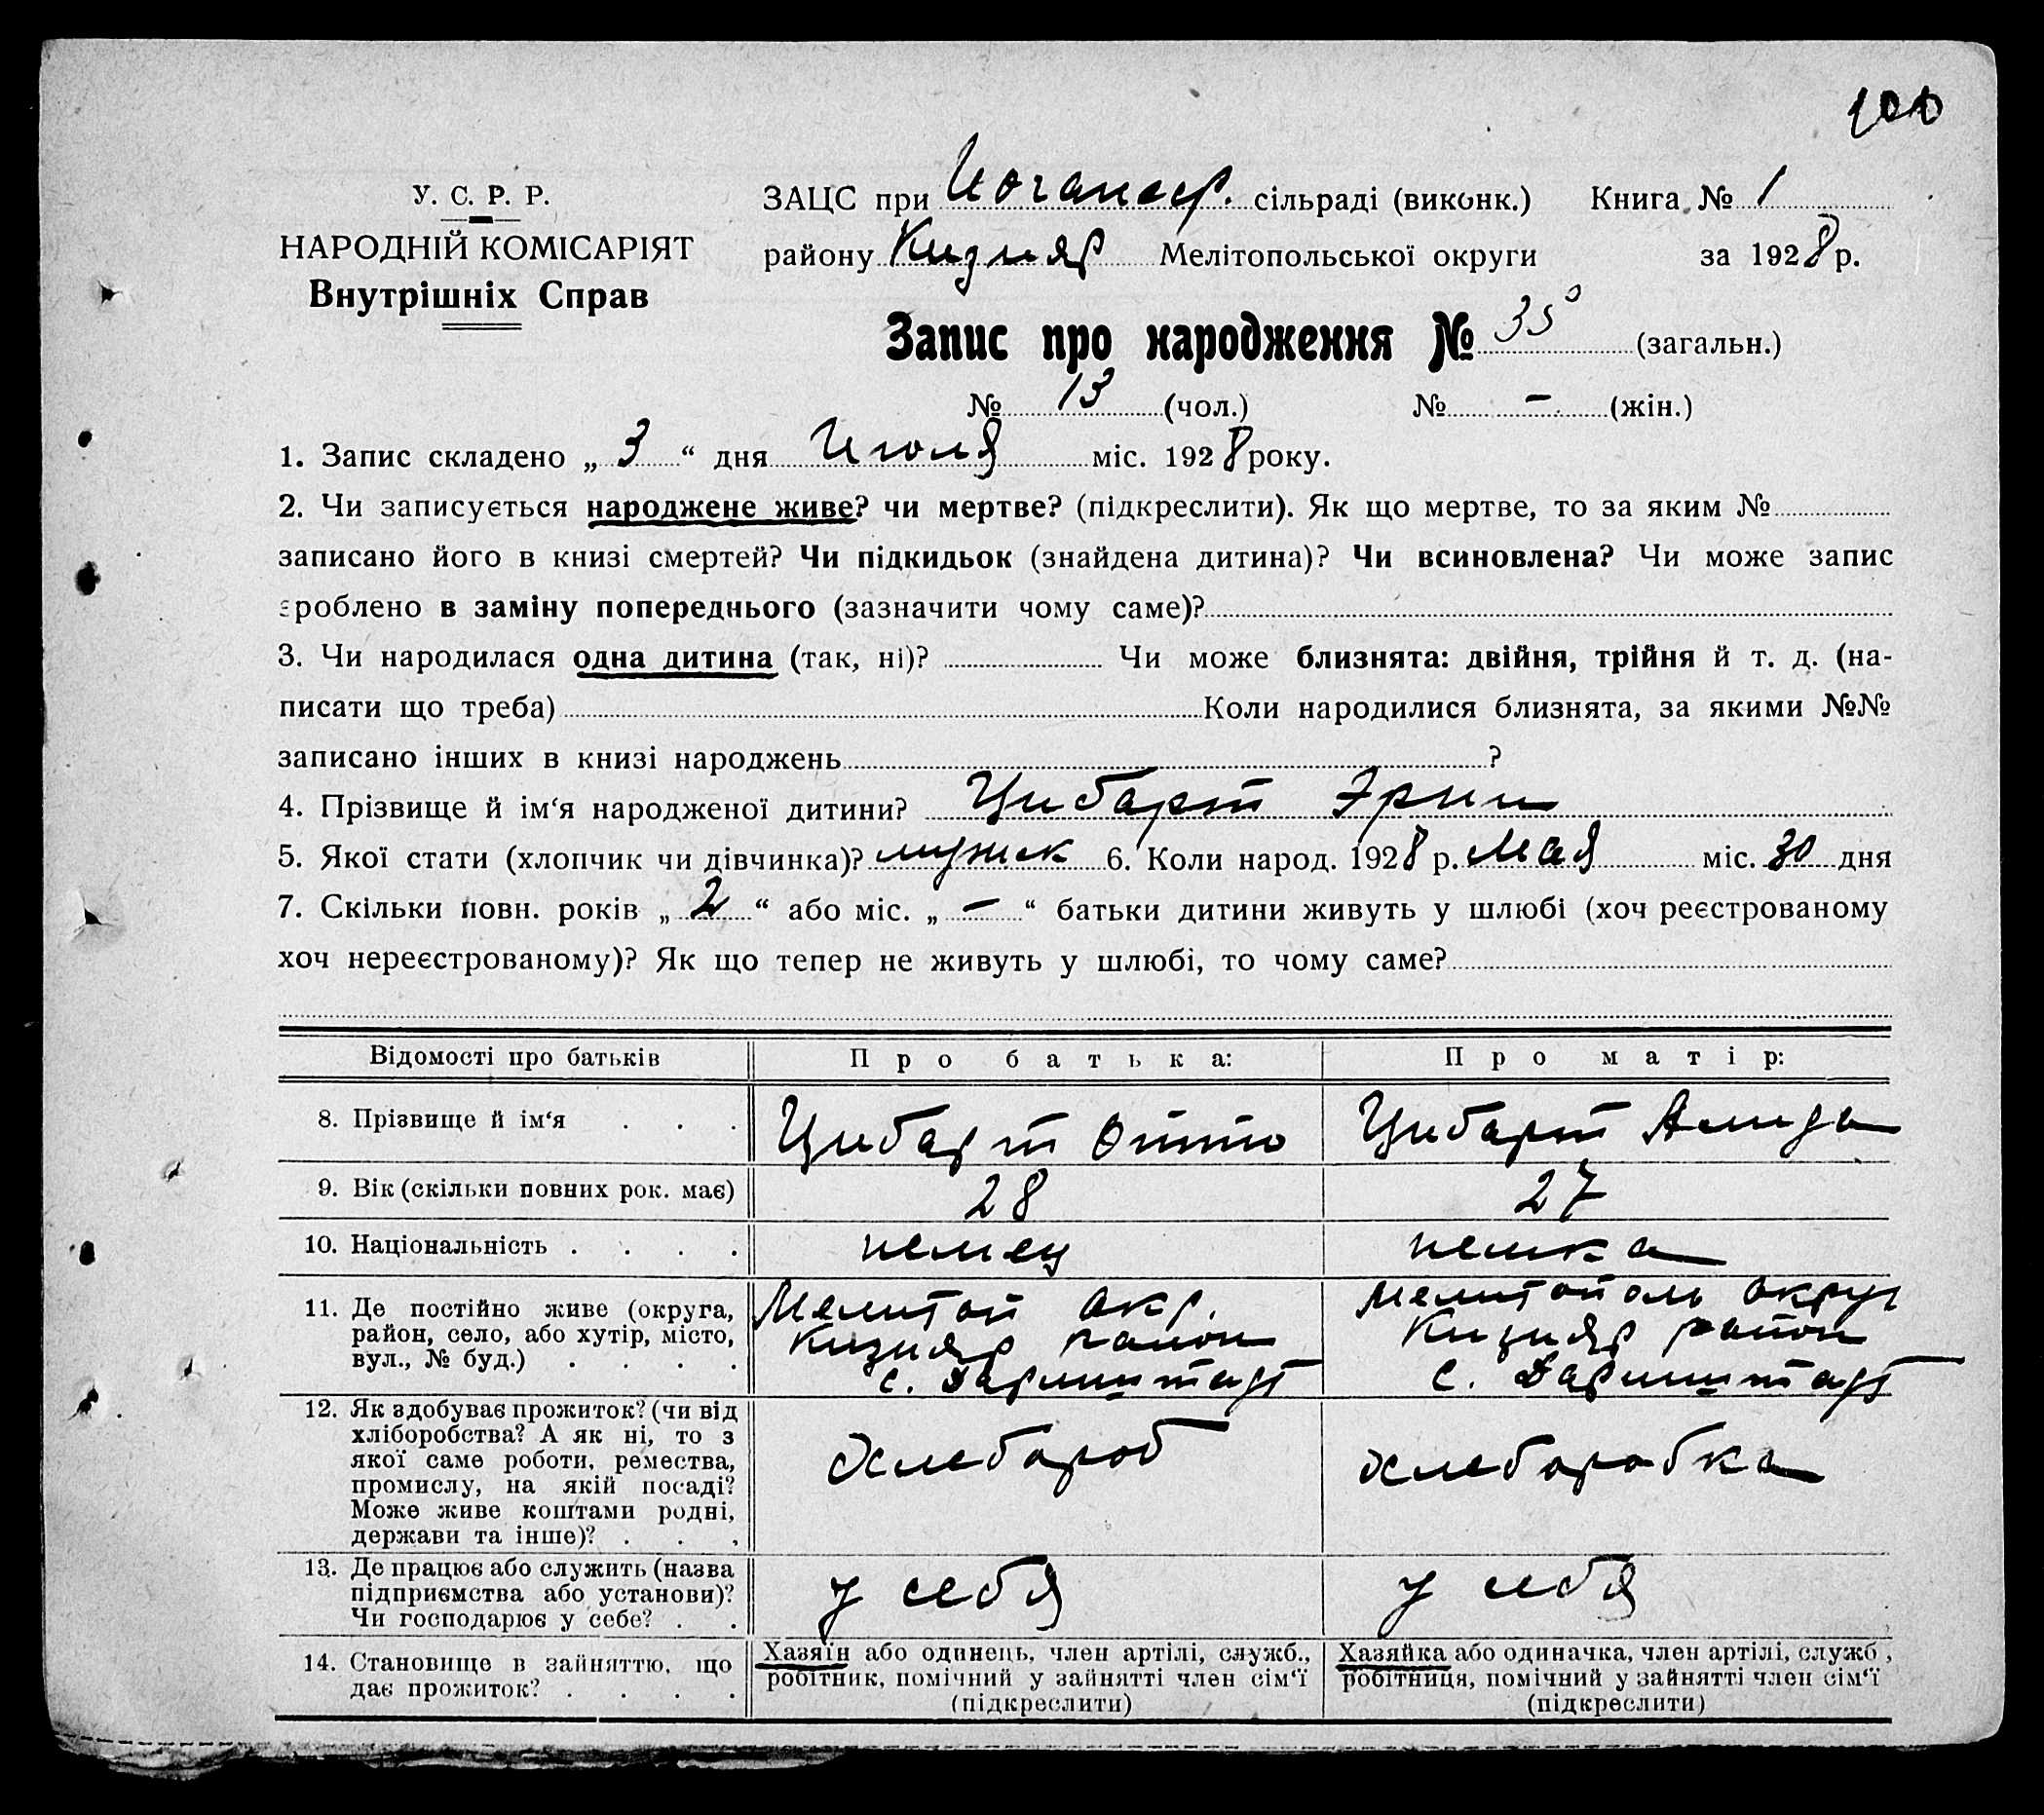 100
У. С. Р. Р.
НАРОДНІЙ КОМІСАРІЯТ
Внутрішніх Справ
ЗАЦС при Иоганеср. сільраді (виконк.) Книга № 1
району Кизияр Мелітопольської округи за 1928 р.
Запис про народження № 35 (загальн.)
№ 13 (чол.) № – (жін.)
1. Запис складено „ 3 “ дня Июля міс. 1928 року.
2. Чи записується народжене живе? чи мертве? (підкреслити). Як що мертве, то за яким №
записано його в книзі смертей? Чи підкидьок (знайдена дитина)? Чи всиновлена? Чи може запис
зроблено в заміну попереднього (зазначити чому саме)?
3. Чи народилася одна дитина (так, ні)? Чи може близнята: двійня, трійня й т. д. (на-
писати що треба) Коли народилися близнята, за якими №№
записано інших в книзі народжень ?
4. Прізвище й ім‘я народженої дитини? Цибарт Эрин
5. Якої стати (хлопчик чи дівчинка)? мужск 6. Коли народ. 1928 р. Мая міс. 30 дня
7. Скільки повн. років „ 2 “ або міс. „ – “ батьки дитини живуть у шлюбі (хоч реєстрованому
хоч нереєстрованому)? Як що тепер не живуть у шлюбі, то чому саме?
Відомості про батьків Про батька: Про матір:
8. Прізвище й ім‘я . . . Цибарт Отто Цибарт Алида
9. Вік (скільки повних рок. має) 28 27
10. Національність . . . . немец немка
11. Де постійно живе (округа,
район, село, або хутір, місто,
вул., № буд.) . . . .
Мелитоп окр.
Кизияр район
с. Дармштадт
Мелитополь округ
Кизияр район
с. Дармштадт
12. Як здобуває прожиток? (чи від
хліборобства? А як ні, то з
якої саме роботи, ремества,
промислу, на якій посаді?
Може живе коштами родні,
держави та інше)? . . .
Хлебороб
хлеборобка
13. Де працює або служить (назва
підприємства або установи)?
Чи господарює у себе? . .
у себя
у себя
14. Становище в зайняттю, що
дає прожиток? . . . .
Хазяїн або одинець, член артілі, служб.,
робітник, помічний у зайнятті член сім‘ї
(підкреслити)
Хазяйка або одиначка, член артілі, служб.,
робітниця, помічний у зайнятті член сім‘ї
(підкреслити)